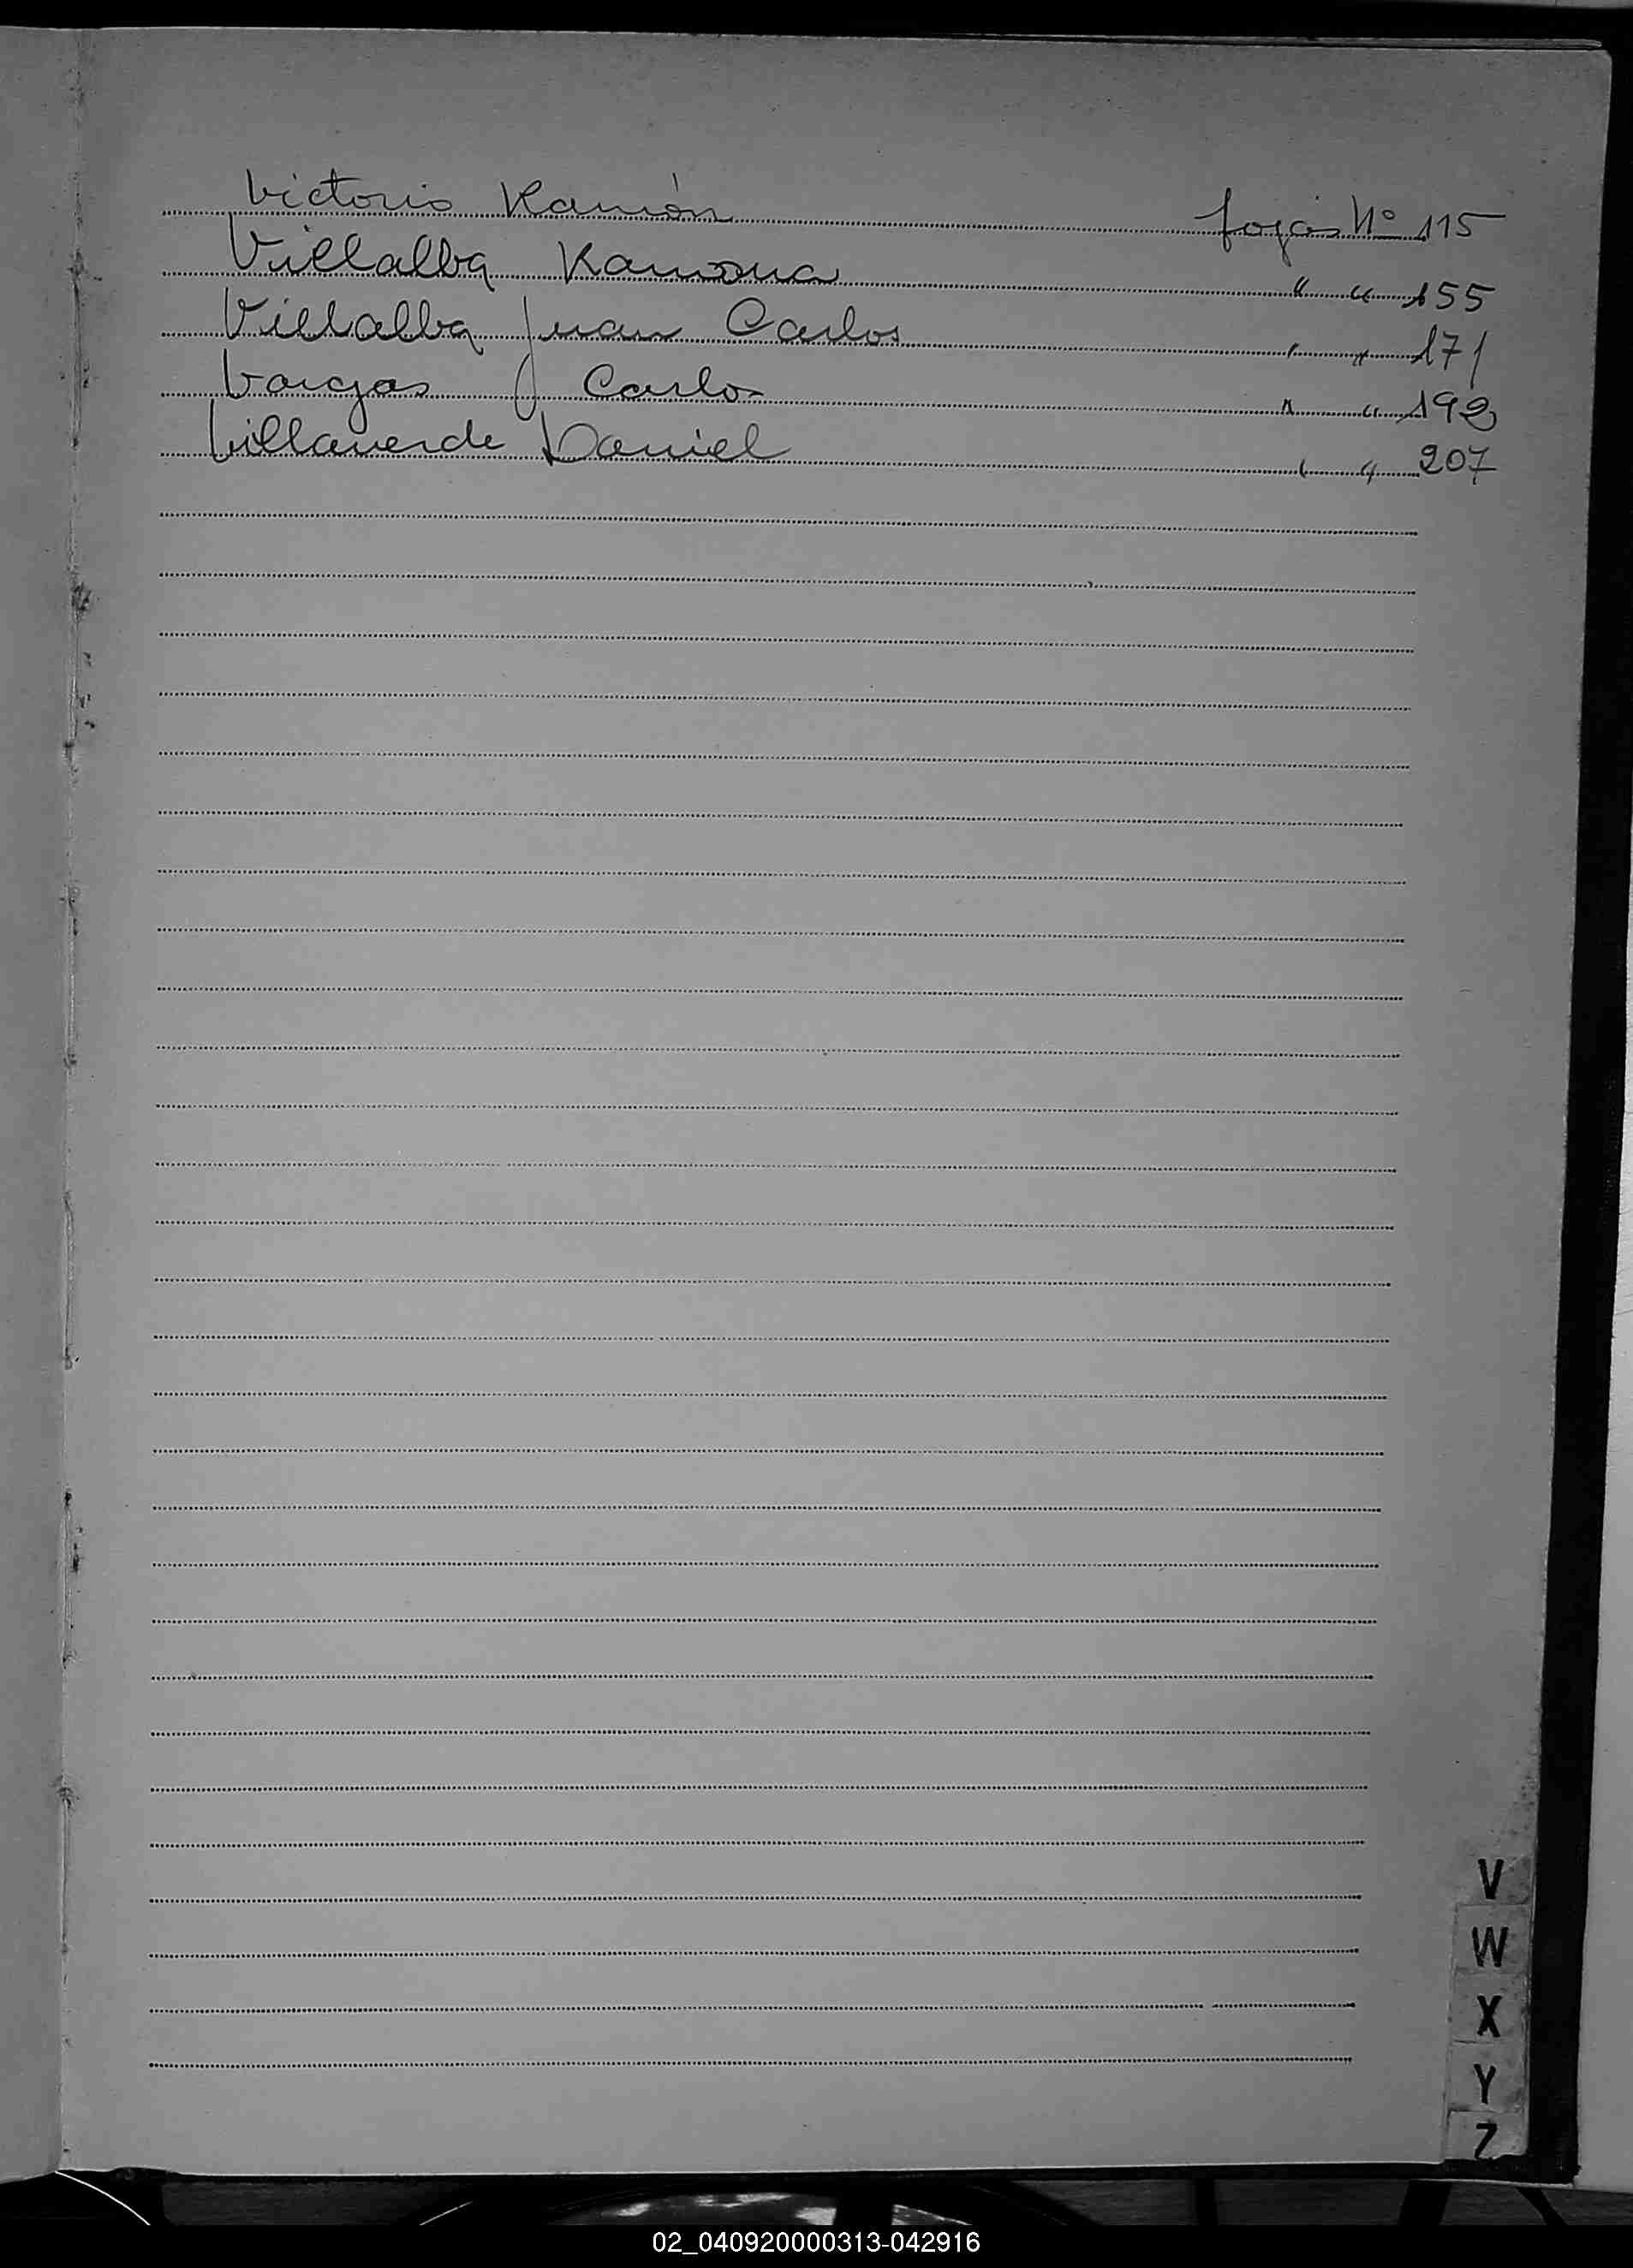 Victorio Ramón fojas Nº 115
Villalba Ramona " " 155
Villalba Juan Carlos " " 171
Vargas Carlos " " 192
Villaverde Daniel " " 207
V
W
X
Y
Z
02_040920000313-042916